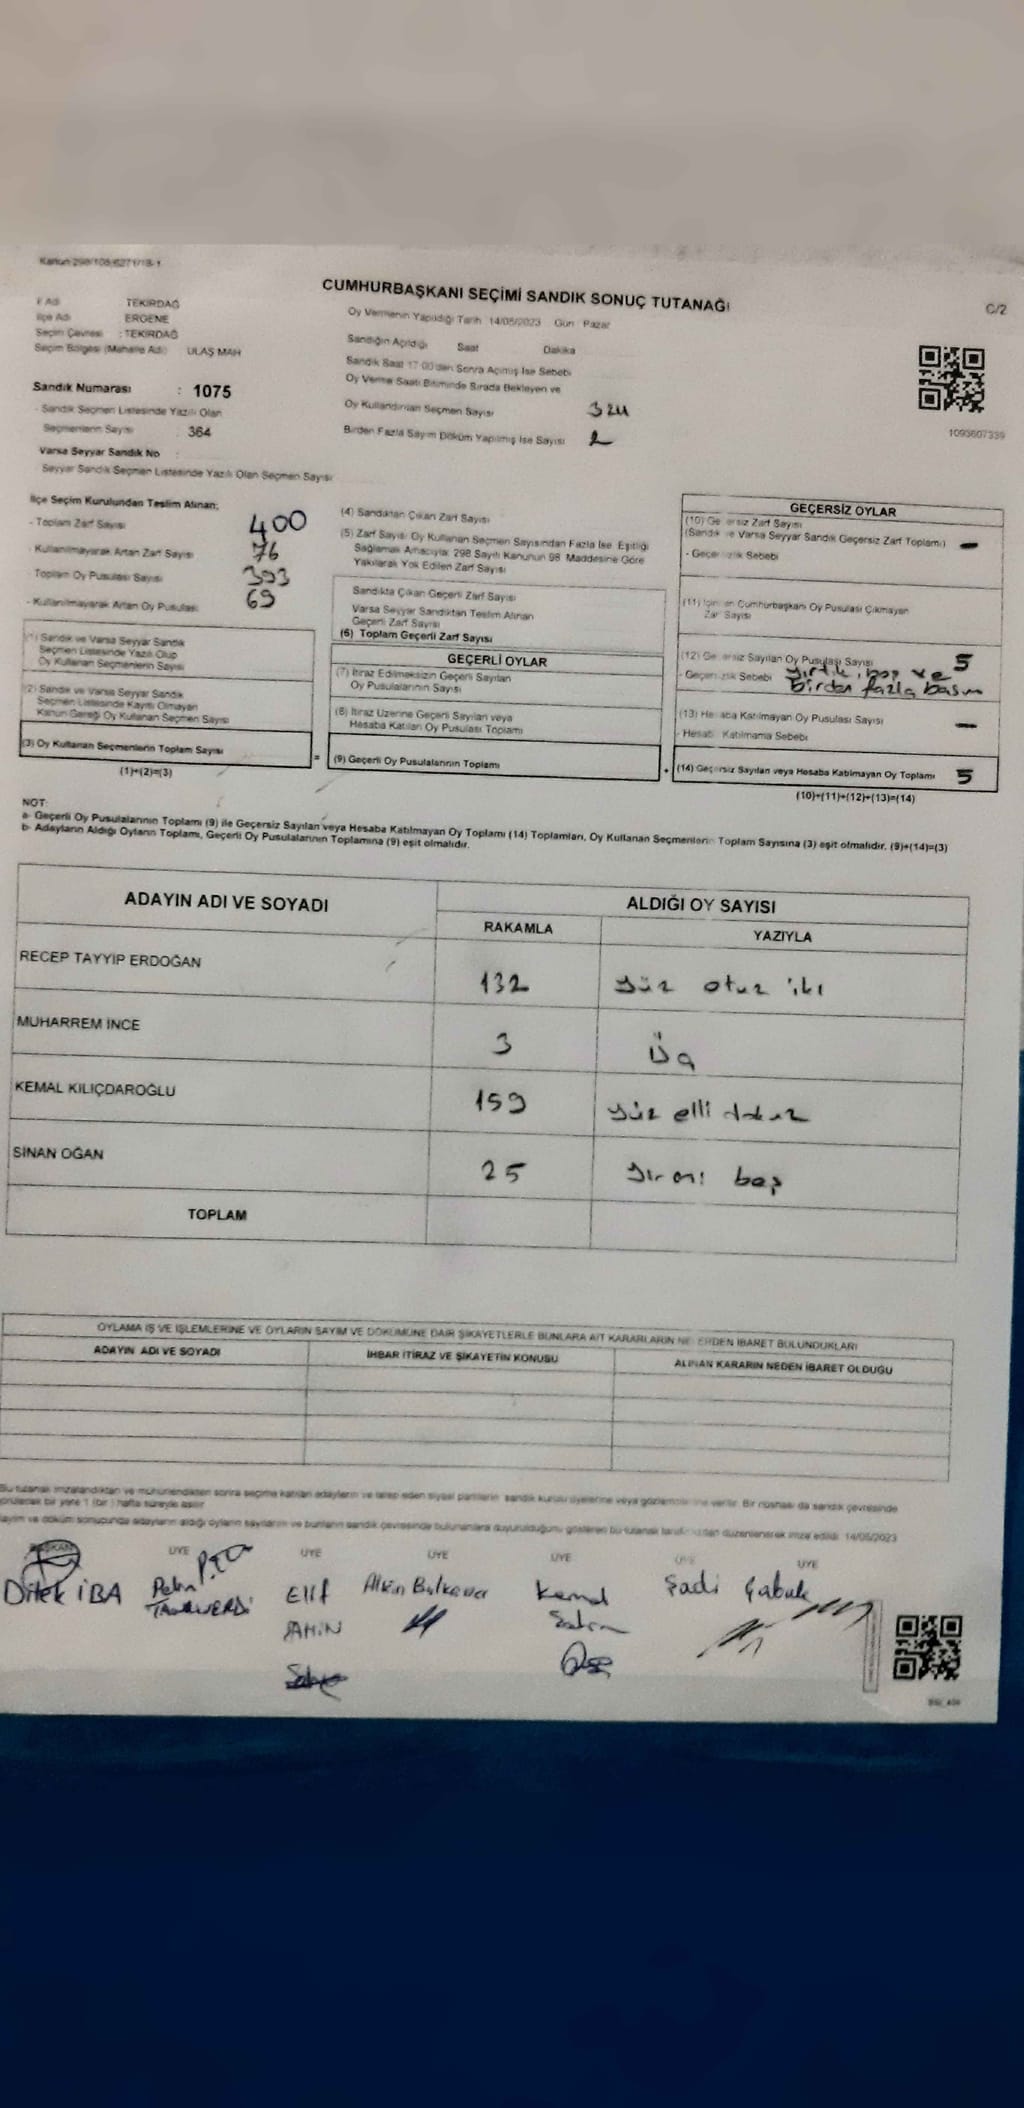 Kanun 298/105-6271/18-1
CUMHURBAŞKANI SEÇİMİ SANDIK SONUÇ TUTANAĞI
C/2
İl Adı TEKİRDAĞ
İlçe Adı ERGENE
Seçim Çevresi : TEKİRDAĞ
Seçim Bölgesi (Mahalle Adı) ULAŞ MAH
Oy Vermenin Yapıldığı Tarih 14/05/2023 Gün Pazar
Sandığın Açıldığı Saat Dakika
Sandık Saat 17:00'den Sonra Açılmış İse Sebebi
Oy Verme Saati Bitiminde Sırada Bekleyen ve
Oy Kullandırılan Seçmen Sayısı 324
Birden Fazla Sayım Döküm Yapılmış İse Sayısı 2
1093607339
Sandık Numarası : 1075
- Sandık Seçmen Listesinde Yazılı Olan
Seçmenlerin Sayısı : 364
Varsa Seyyar Sandık No
Seyyar Sandık Seçmen Listesinde Yazılı Olan Seçmen Sayısı
İlçe Seçim Kurulundan Teslim Alınan;
- Toplam Zarf Sayısı 400
- Kullanılmayarak Artan Zarf Sayısı 76
Toplam Oy Pusulası Sayısı 393
- Kullanılmayarak Artan Oy Pusulası 69
(1) Sandık ve Varsa Seyyar Sandık
Seçmen Listesinde Yazılı Olup
Oy Kullanan Seçmenlerin Sayısı
(2) Sandık ve Varsa Seyyar Sandık
Seçmen Listesinde Kayıtlı Olmayan
Kanun Gereği Oy Kullanan Seçmen Sayısı
(3) Oy Kullanan Seçmenlerin Toplam Sayısı
(1)+(2)=(3)
(4) Sandıktan Çıkan Zarf Sayısı
(5) Zarf Sayısı Oy Kullanan Seçmen Sayısından Fazla İse Eşitliği
Sağlamak Amacıyla; 298 Sayılı Kanunun 98. Maddesine Göre
Yakılarak Yok Edilen Zarf Sayısı
Sandıkta Çıkan Geçerli Zarf Sayısı
Varsa Seyyar Sandıktan Teslim Alınan
Geçerli Zarf Sayısı
(6) Toplam Geçerli Zarf Sayısı
GEÇERLİ OYLAR
(7) İtiraz Edilmeksizin Geçerli Sayılan
Oy Pusulalarının Sayısı
(8) İtiraz Üzerine Geçerli Sayılan veya
Hesaba Katılan Oy Pusulası Toplamı
= (9) Geçerli Oy Pusulalarının Toplamı
GEÇERSİZ OYLAR
(10) Geçersiz Zarf Sayısı
(Sandık ve Varsa Seyyar Sandık Geçersiz Zarf Toplamı) -
- Geçersizlik Sebebi
(11) İçinden Cumhurbaşkanı Oy Pusulası Çıkmayan
Zarf Sayısı
(12) Geçersiz Sayılan Oy Pusulası Sayısı 5
- Geçersizlik Sebebi yırtık, boş ve
birden fazla basım
(13) Hesaba Katılmayan Oy Pusulası Sayısı -
- Hesaba Katılmama Sebebi
+ (14) Geçersiz Sayılan veya Hesaba Katılmayan Oy Toplamı 5
(10)+(11)+(12)+(13)=(14)
NOT:
a- Geçerli Oy Pusulalarının Toplamı (9) ile Geçersiz Sayılan veya Hesaba Katılmayan Oy Toplamı (14) Toplamları, Oy Kullanan Seçmenlerin Toplam Sayısına (3) eşit olmalıdır. (9)+(14)=(3)
b- Adayların Aldığı Oyların Toplamı, Geçerli Oy Pusulalarının Toplamına (9) eşit olmalıdır.
ADAYIN ADI VE SOYADI ALDIĞI OY SAYISI
RAKAMLA YAZIYLA
RECEP TAYYİP ERDOĞAN 132 yüz otuz iki
MUHARREM İNCE 3 Üç
KEMAL KILIÇDAROĞLU 159 yüz elli dokuz
SİNAN OĞAN 25 yirmi beş
TOPLAM
OYLAMA İŞ VE İŞLEMLERİNE VE OYLARIN SAYIM VE DÖKÜMÜNE DAİR ŞİKAYETLERLE BUNLARA AİT KARARLARIN NELERDEN İBARET BULUNDUKLARI
ADAYIN ADI VE SOYADI İHBAR İTİRAZ VE ŞİKAYETİN KONUSU ALINAN KARARIN NEDEN İBARET OLDUĞU
Bu tutanak imzalandıktan ve mühürlendikten sonra seçime katılan adayların ve talep eden siyasi partilerin sandık kurulu üyelerine veya gözlemcilerine verilir. Bir nüshası da sandık çevresinde
görülecek bir yere 1 (bir) hafta süreyle asılır
Sayım ve döküm sonucunda adayların aldığı oyların sayılarını ve bunların sandık çevresinde bulunanlara duyurulduğunu gösteren bu tutanak tarafımızdan düzenlenerek imza edildi. 14/05/2023
BAŞKAN ÜYE ÜYE ÜYE ÜYE ÜYE ÜYE
Dilek İBA Pelin TANRIVERDİ Elif ŞAHİN Kemal Şadi Çabuk